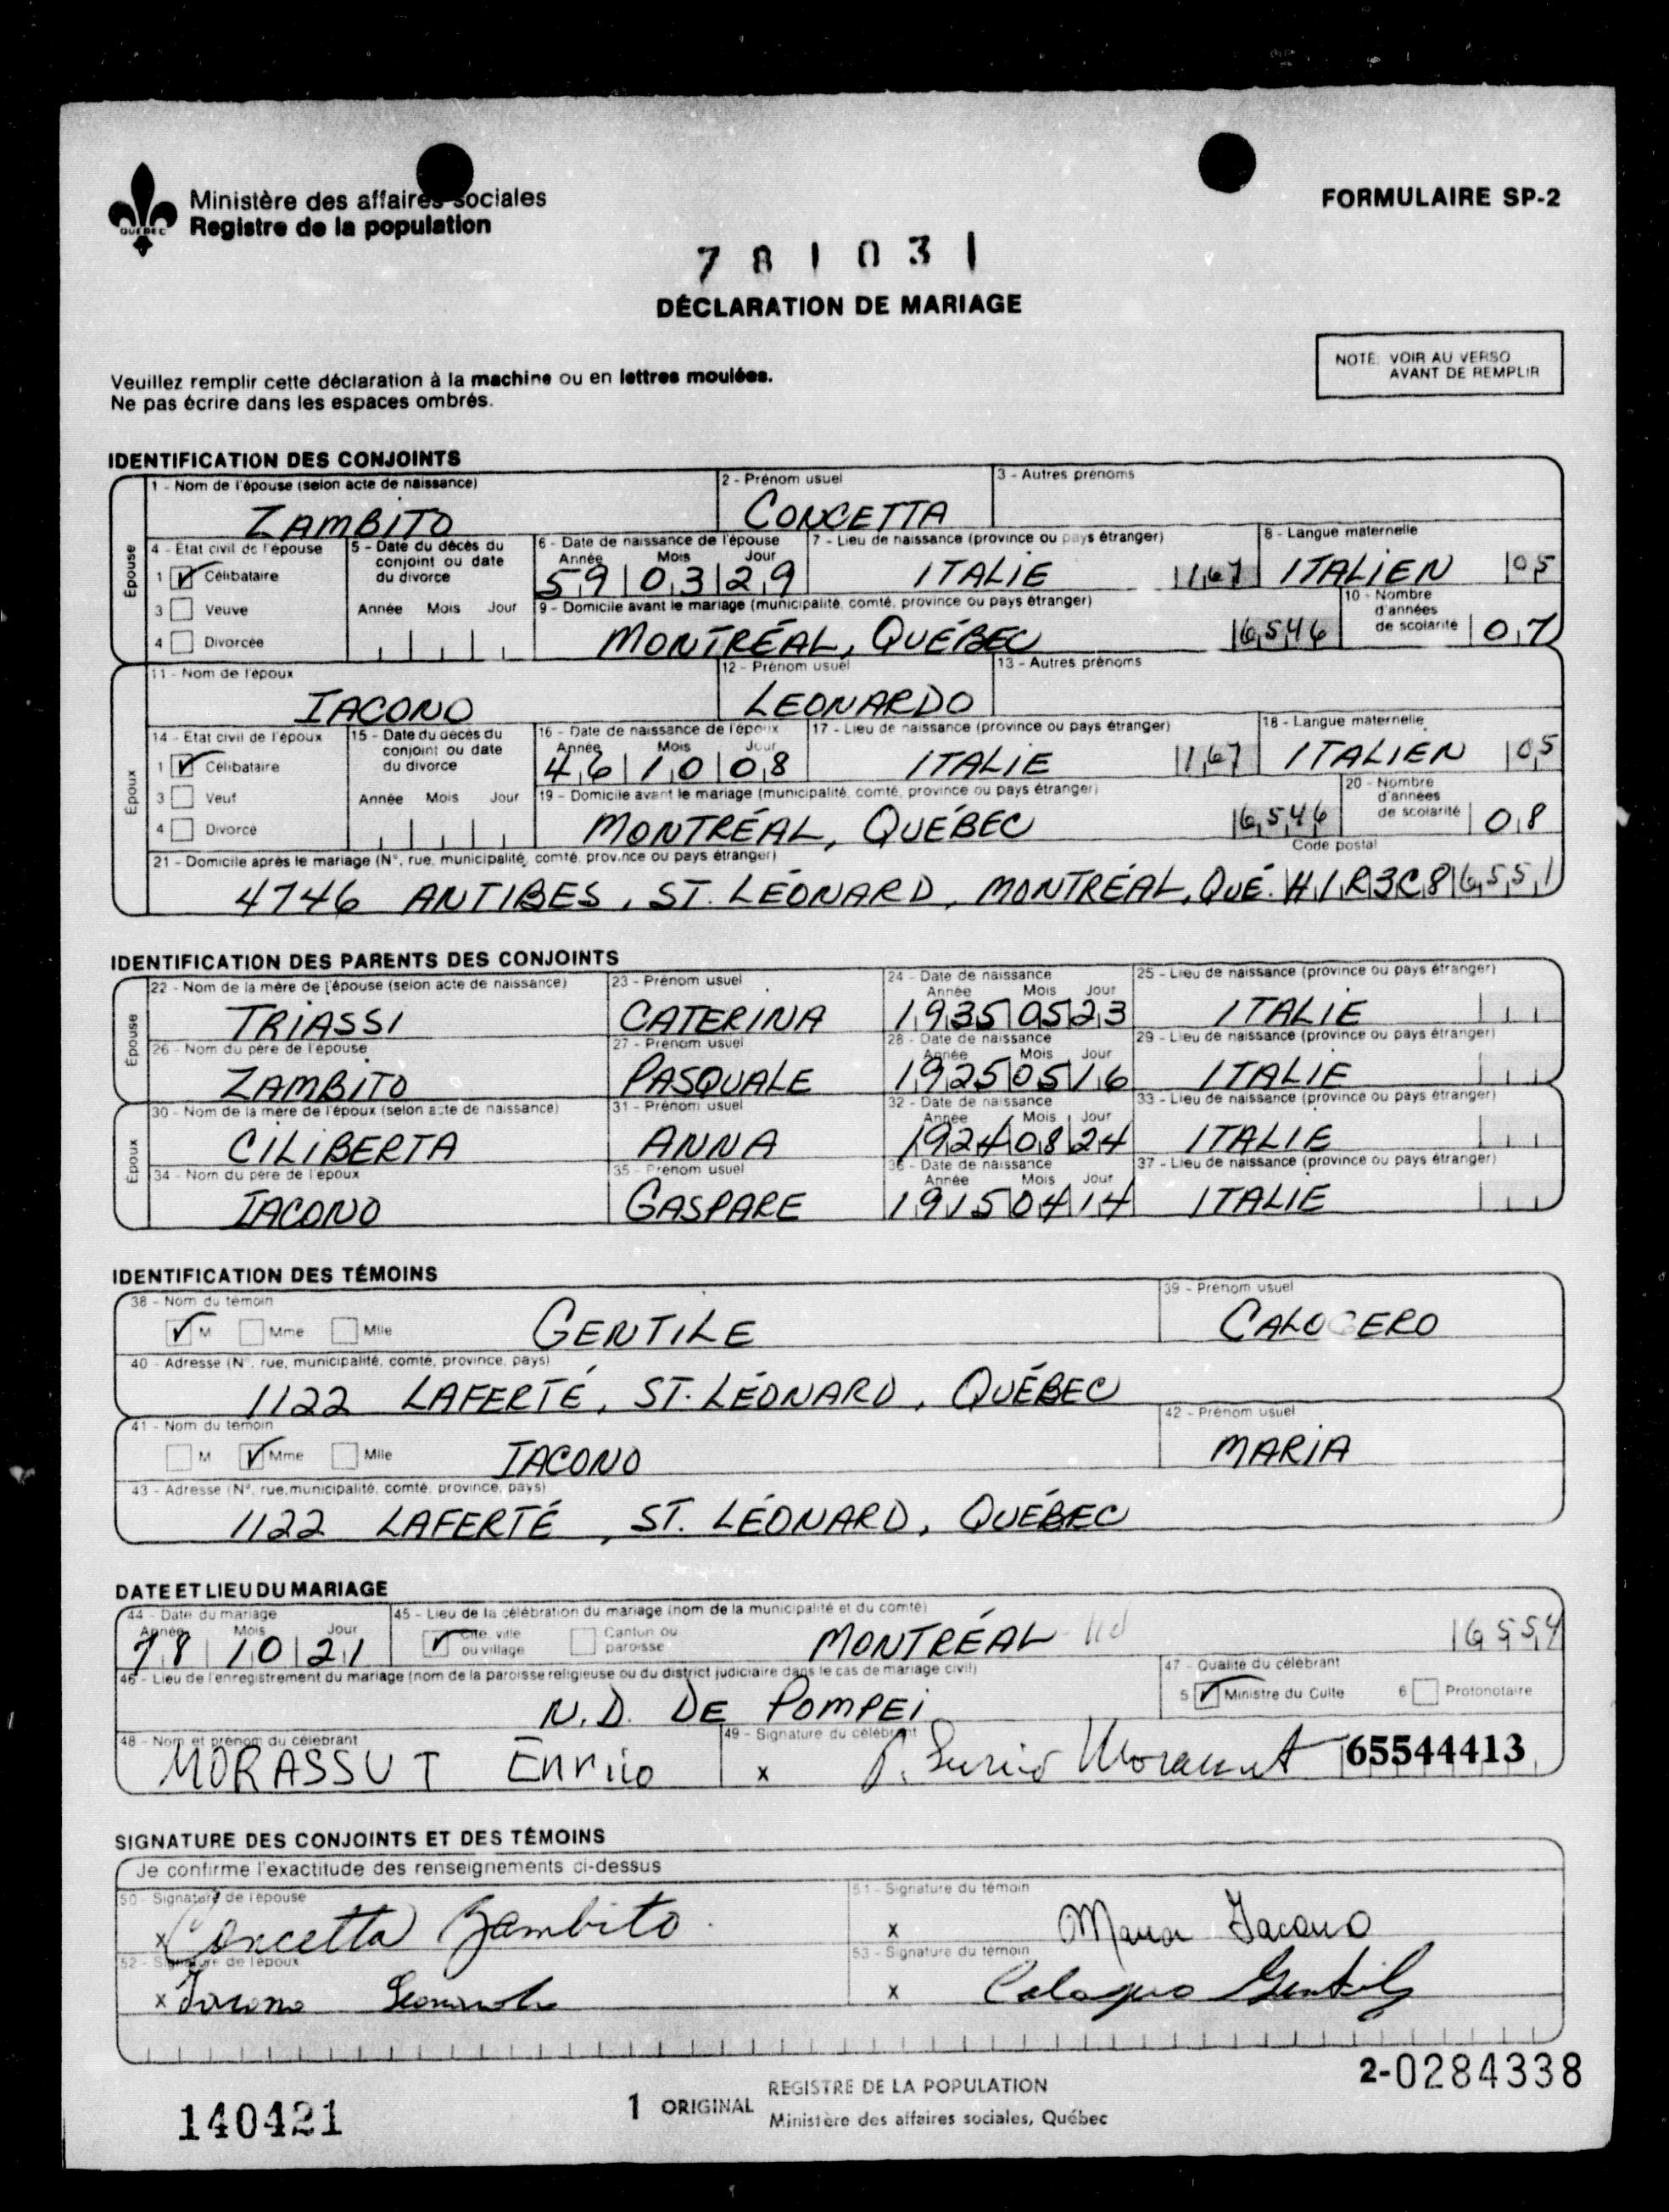 QUÉBEC
Ministère des affaires sociales
Registre de la population
FORMULAIRE SP-2
781031
DÉCLARATION DE MARIAGE
NOTE: VOIR AU VERSO
AVANT DE REMPLIR
Veuillez remplir cette déclaration à la machine ou en lettres moulées.
Ne pas écrire dans les espaces ombrés.
IDENTIFICATION DES CONJOINTS
Épouse
1 - Nom de l'épouse (selon acte de naissance)
ZAMBITO
2 - Prénom usuel
CONCETTA
3 - Autres prénoms
4 - État civil de l'épouse
1 Célibataire
3 Veuve
4 Divorcée
5 - Date du décès du
conjoint ou date
du divorce
Année Mois Jour
6 - Date de naissance de l'épouse
Année Mois Jour
59 03 29
7 - Lieu de naissance (province ou pays étranger)
ITALIE 167
8 - Langue maternelle
ITALIEN 05
9 - Domicile avant le mariage (municipalité, comté, province ou pays étranger)
MONTRÉAL, QUÉBEC 6546
10 - Nombre
d'années
de scolarité 07
Époux
11 - Nom de l'époux
IACONO
12 - Prénom usuel
LEONARDO
13 - Autres prénoms
14 - État civil de l'époux
1 Célibataire
3 Veuf
4 Divorcé
15 - Date du décès du
conjoint ou date
du divorce
Année Mois Jour
16 - Date de naissance de l'époux
Année Mois Jour
46 10 08
17 - Lieu de naissance (province ou pays étranger)
ITALIE 167
18 - Langue maternelle
ITALIEN 05
19 - Domicile avant le mariage (municipalité, comté, province ou pays étranger)
MONTRÉAL, QUÉBEC 6546
20 - Nombre
d'années
de scolarité 08
21 - Domicile après le mariage (N°, rue, municipalité, comté, province ou pays étranger)
Code postal
4746 ANTIBES, ST. LÉONARD, MONTRÉAL, QUÉ. H1R3C8 6551
IDENTIFICATION DES PARENTS DES CONJOINTS
Épouse
22 - Nom de la mère de l'épouse (selon acte de naissance)
TRIASSI
23 - Prénom usuel
CATERINA
24 - Date de naissance
Année Mois Jour
1935 05 23
25 - Lieu de naissance (province ou pays étranger)
ITALIE
26 - Nom du père de l'épouse
ZAMBITO
27 - Prénom usuel
PASQUALE
28 - Date de naissance
Année Mois Jour
1925 05 16
29 - Lieu de naissance (province ou pays étranger)
ITALIE
Époux
30 - Nom de la mère de l'époux (selon acte de naissance)
CILIBERTA
31 - Prénom usuel
ANNA
32 - Date de naissance
Année Mois Jour
1924 08 24
33 - Lieu de naissance (province ou pays étranger)
ITALIE
34 - Nom du père de l'époux
IACONO
35 - Prénom usuel
GASPARE
36 - Date de naissance
Année Mois Jour
1915 04 14
37 - Lieu de naissance (province ou pays étranger)
ITALIE
IDENTIFICATION DES TÉMOINS
38 - Nom du témoin
M Mme Mlle
GENTILE
39 - Prénom usuel
CALOGERO
40 - Adresse (N°, rue, municipalité, comté, province, pays)
1122 LAFERTÉ, ST. LÉONARD, QUÉBEC
41 - Nom du témoin
M Mme Mlle
IACONO
42 - Prénom usuel
MARIA
43 - Adresse (N°, rue, municipalité, comté, province, pays)
1122 LAFERTÉ, ST. LÉONARD, QUÉBEC
DATE ET LIEU DU MARIAGE
44 - Date du mariage
Année Mois Jour
78 10 21
45 - Lieu de la célébration du mariage (nom de la municipalité et du comté)
Cité, ville
ou village
Canton ou
paroisse
MONTRÉAL 6554
46 - Lieu de l'enregistrement du mariage (nom de la paroisse religieuse ou du district judiciaire dans le cas de mariage civil)
N.D. DE POMPEI
47 - Qualité du célébrant
5 Ministre du Culte
6 Protonotaire
48 - Nom et prénom du célébrant
MORASSUT Enrico
49 - Signature du célébrant
x P. Enrico Morassut
65544413
SIGNATURE DES CONJOINTS ET DES TÉMOINS
Je confirme l'exactitude des renseignements ci-dessus
50 - Signature de l'épouse
x Concetta Zambito
51 - Signature du témoin
x Maria Iacono
52 - Signature de l'époux
x Iacono Leonardo
53 - Signature du témoin
x Calogero Gentile
2-0284338
140421
1 ORIGINAL
REGISTRE DE LA POPULATION
Ministère des affaires sociales, Québec